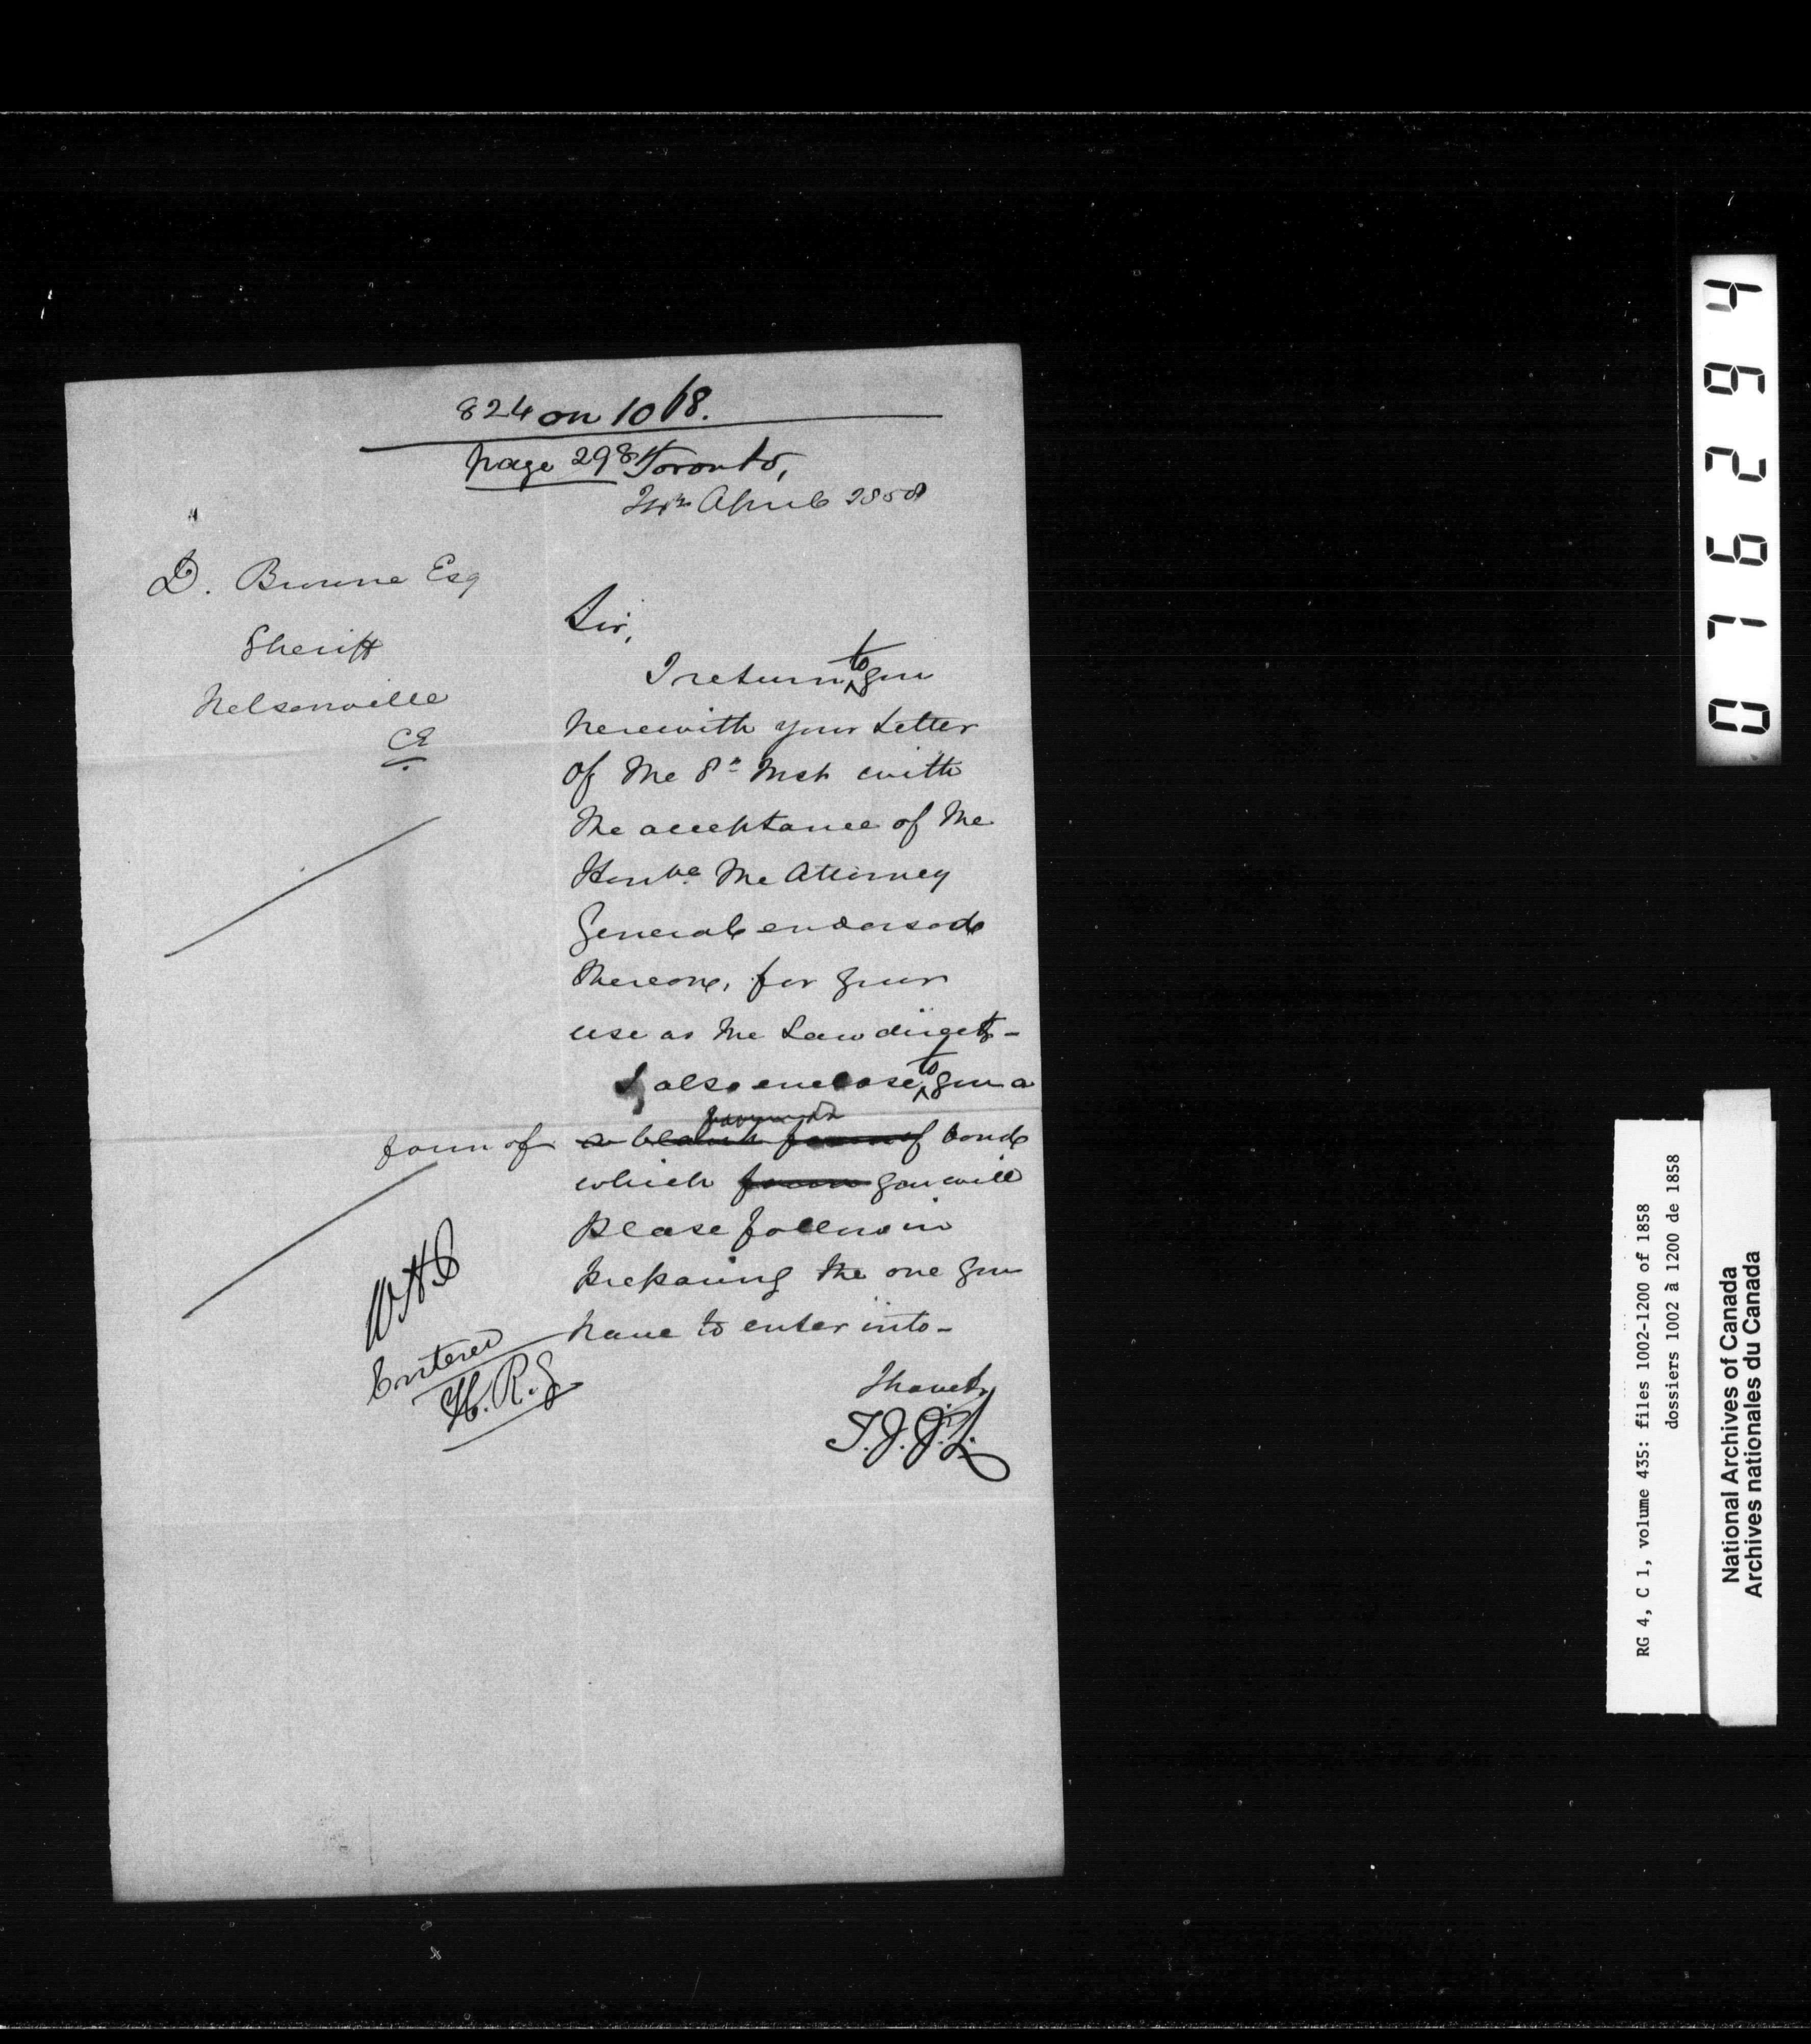 824 on 1068.
page 298 Toronto,
April 1858
D. Browne Esq
Sheriff
Nelsonville
CE
Sir,
I return to you
herewith your Letter
of the 8th Inst with
the acceptance of the
Honble the Attorney
General endorsed
thereon, for your
use as the Law directs -
I also enclose to you a
form of a blank form of bond
which form you will
please follow in
preparing the one you
have to enter into -
I have &c
T.J.J.L.
Entered
H.R.S
0 7 6 2 9 4
RG 4, C 1, volume 435: files 1002-1200 of 1858
dossiers 1002 à 1200 de 1858
National Archives of Canada
Archives nationales du Canada